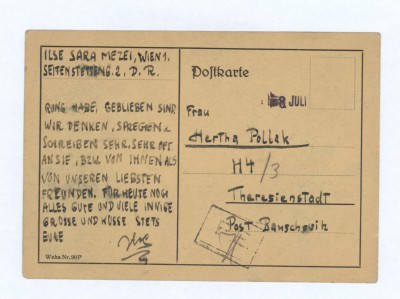 ILSE SARA MEZEI, WIEN 1,
SEITENSTETTENG. 2, D. R.
RUNG HABE, GEBLIEBEN SIND.
WIR DENKEN, SPRECHEN u.
SCHREIBEN SEHR, SEHR OFT
AN SIE, BZW. VON IHNEN ALS
VON UNSEREN LIEBSTEN
FREUNDEN. FÜR HEUTE NOCH
ALLES GUTE UND VIELE INNIGE
GRÜSSE UND KÜSSE STETS
EURE
Ilse
Weka Nr. 90P
Postkarte
8 JULI
Frau
Hertha Pollak
H4/3
Theresienstadt
Post Bauschowitz